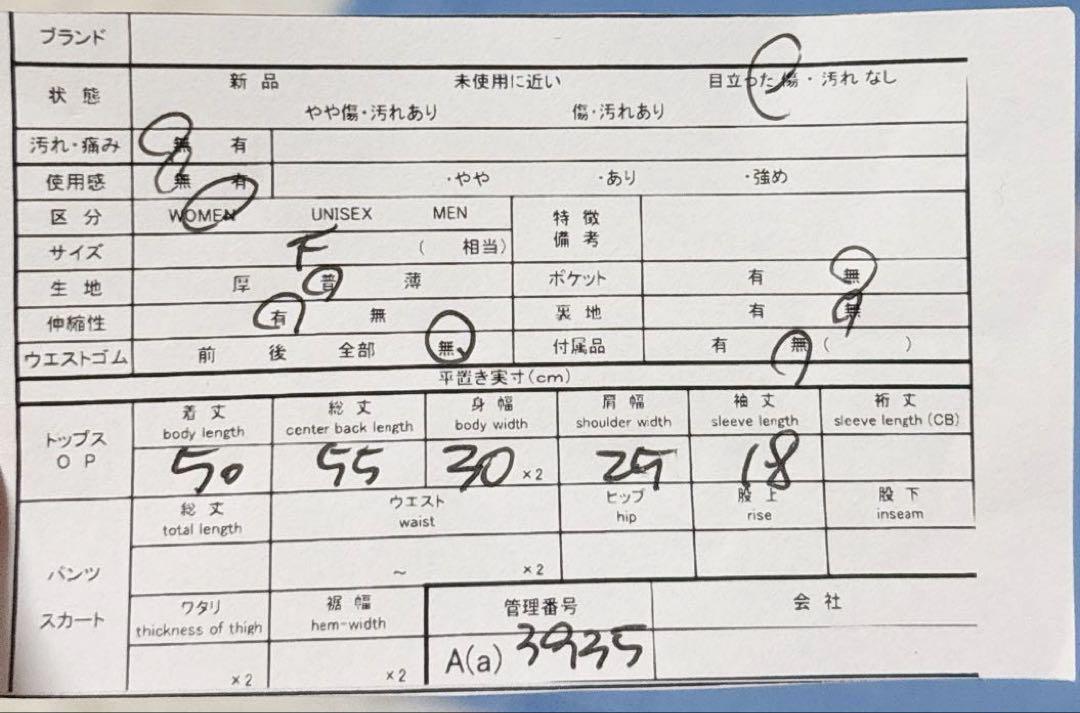 ブランド
状態 新品 未使用に近い 目立った傷・汚れなし
やや傷・汚れあり 傷・汚れあり
汚れ・痛み 無 有
使用感 無 有 ・やや ・あり ・強め
区分 WOMEN UNISEX MEN 特徴備考
サイズ F ( 相当)
生地 厚 普 薄 ポケット 有 無
伸縮性 有 無 裏地 有 無
ウエストゴム 前 後 全部 無 付属品 有 無 ( )
平置き実寸(cm)
トップス OP 着丈 総丈 身幅 肩幅 袖丈 裄丈
body length center back length body width shoulder width sleeve length sleeve length (CB)
50 55 30 ×2 25 18
総丈 ウエスト ヒップ 股上 股下
total length waist hip rise inseam
パンツ ~ ×2
スカート ワタリ 裾幅 管理番号 会社
thickness of thigh hem-width
×2 ×2 A(a) 3935